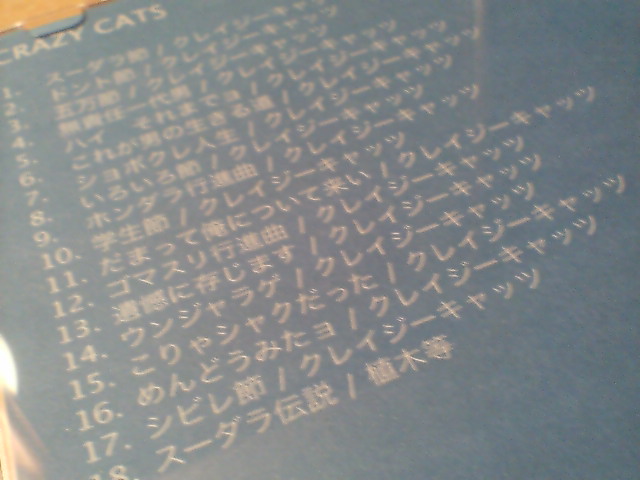 CRAZY CATS
1. スーダラ節 / クレイジーキャッツ
2. ドント節 / クレイジーキャッツ
3. 五万節 / クレイジーキャッツ
4. 無責任一代男 / クレイジーキャッツ
5. ハイ それまでヨ / クレイジーキャッツ
6. これが男の生きる道 / クレイジーキャッツ
7. ショボクレ人生 / クレイジーキャッツ
8. いろいろ節 / クレイジーキャッツ
9. ホンダラ行進曲 / クレイジーキャッツ
10. 学生節 / クレイジーキャッツ
11. だまって俺について来い / クレイジーキャッツ
12. ゴマスリ行進曲 / クレイジーキャッツ
13. 遺憾に存じます / クレイジーキャッツ
14. ウンジャラゲ / クレイジーキャッツ
15. こりゃシャクだった / クレイジーキャッツ
16. めんどうみたヨ / クレイジーキャッツ
17. シビレ節 / クレイジーキャッツ
18. スーダラ伝説 / 植木等